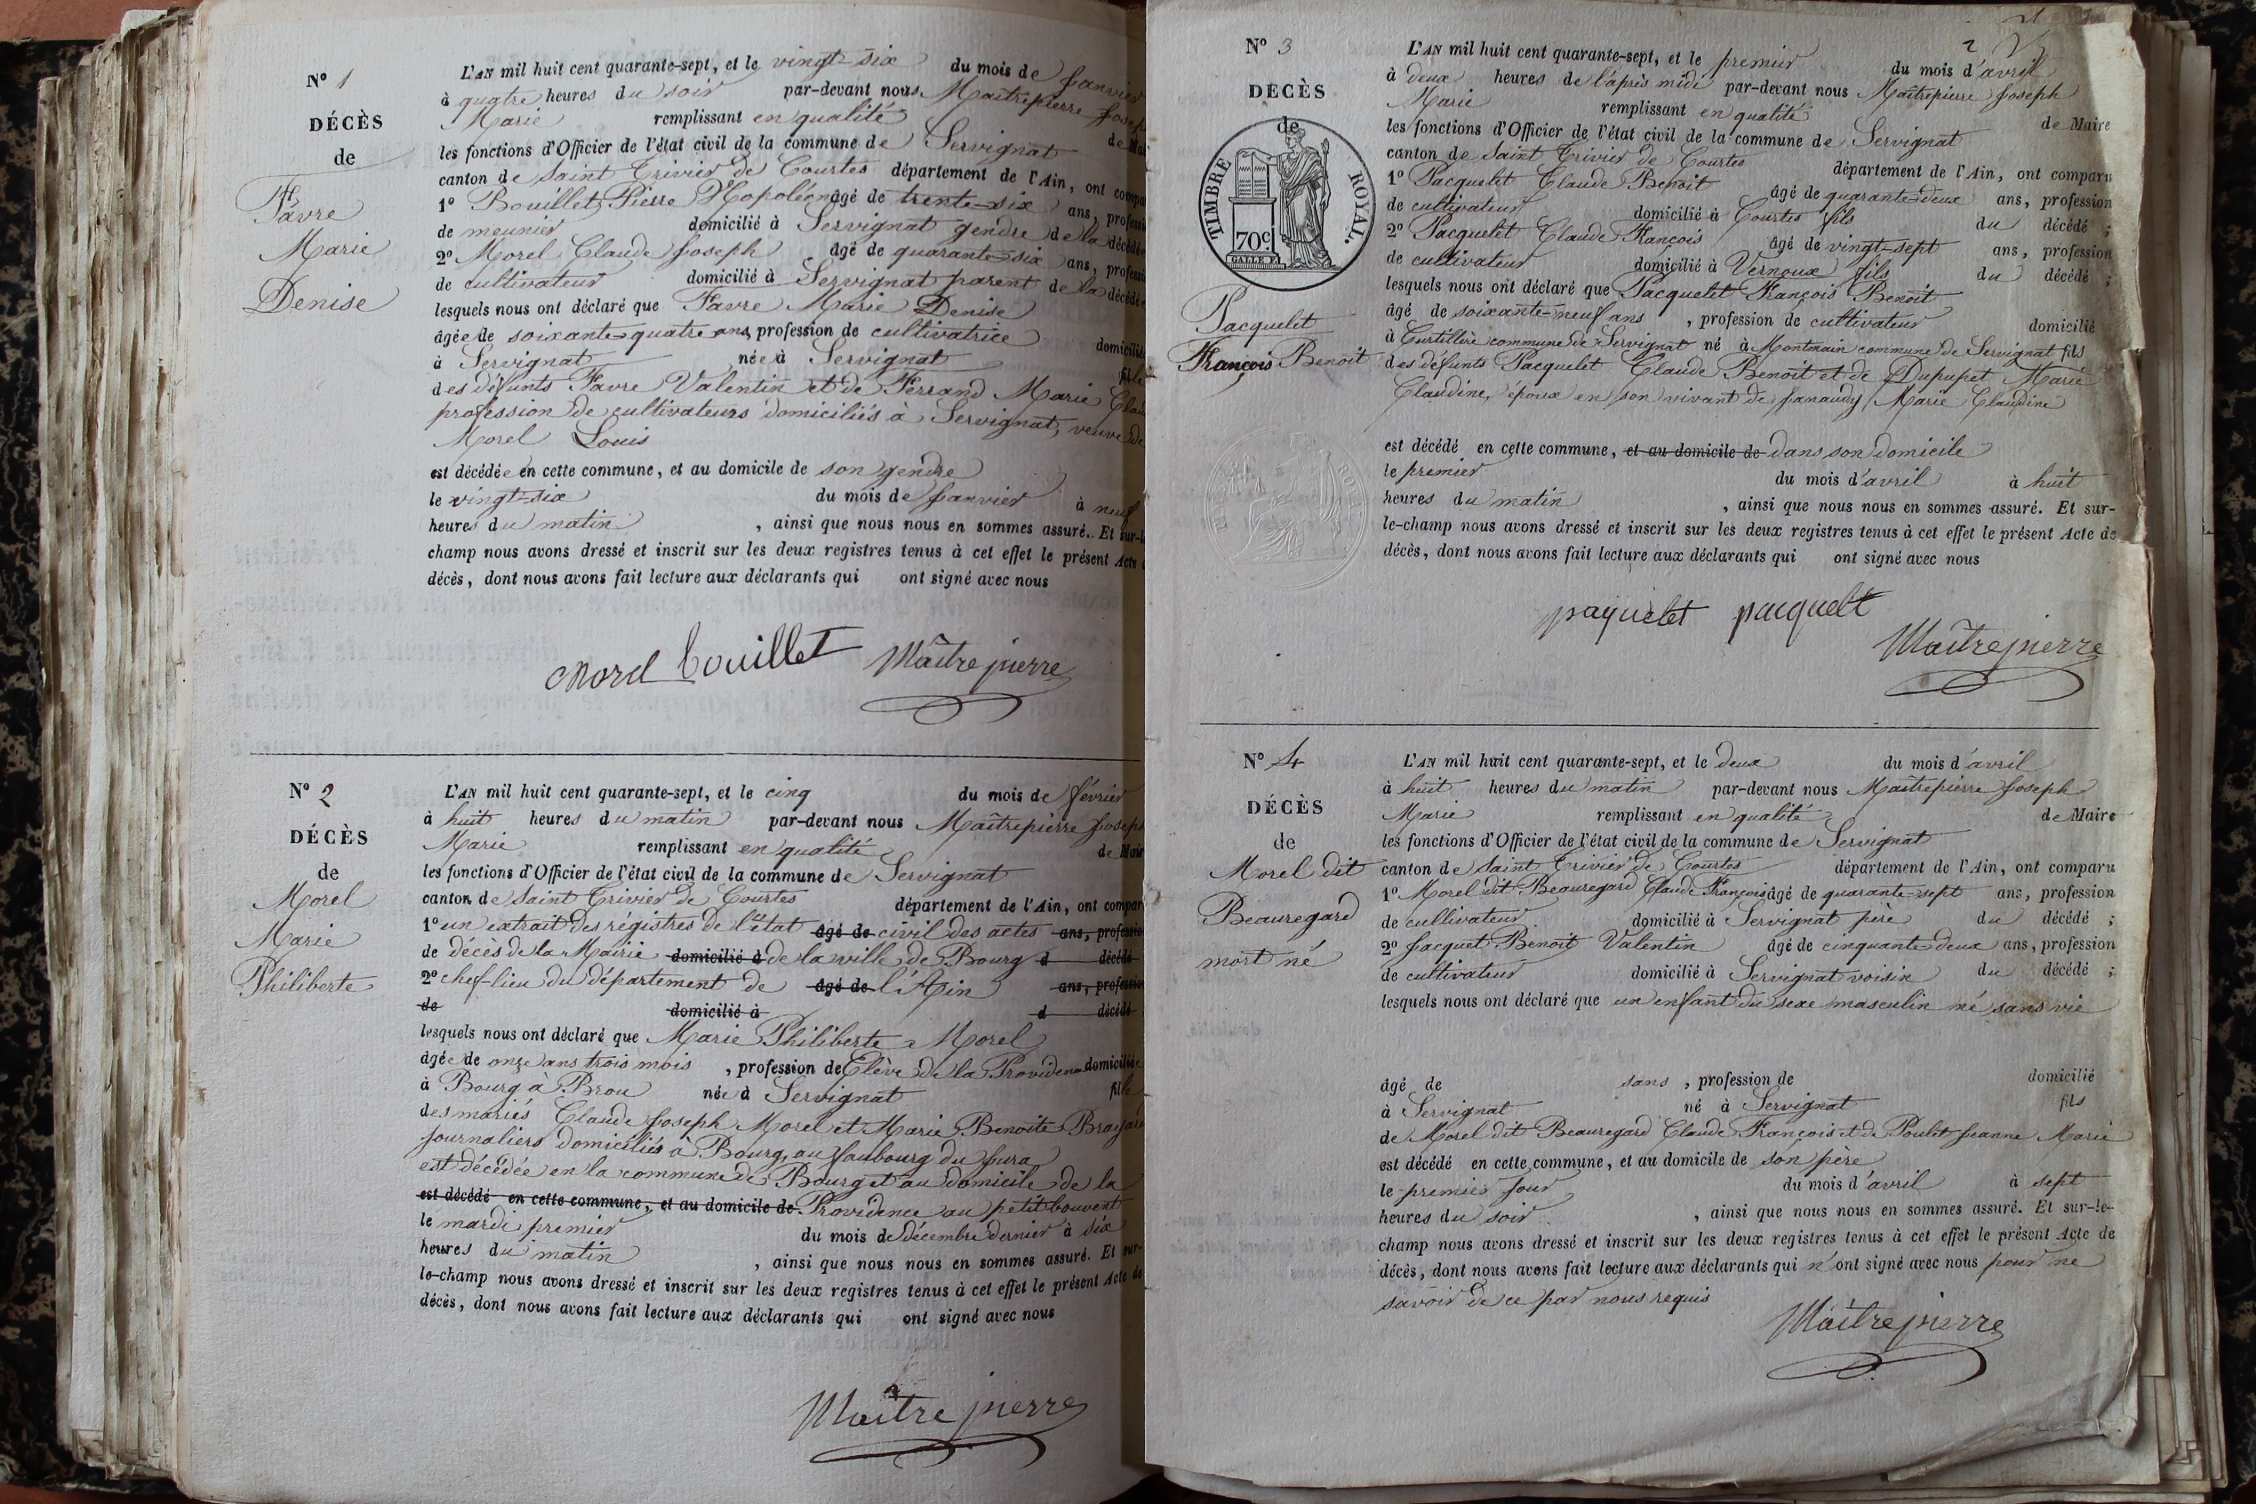 N° 1
DÉCÈS
de
Favre
Marie
Denise
L'AN mil huit cent quarante-sept, et le vingt-six du mois de Janvier
à quatre heures du soir par-devant nous Maîtrepierre Josep
Marie remplissant en qualité de Mai
les fonctions d'Officier de l'état civil de la commune de Servignat
canton de Saint Trivier de Courtes département de l'Ain, ont compar
1° Bouillet Pierre Napoléon âgé de trente-six ans, professi
de meunier domicilié à Servignat gendre de la décédée
2° Morel Claude Joseph âgé de quarante-six ans, professi
de cultivateur domicilié à Servignat parent de la décédé
lesquels nous ont déclaré que Favre Marie Denise
âgée de soixante-quatre ans, profession de cultivatrice domicilié
à Servignat née à Servignat fille
des défunts Favre Valentin et de Ferrand Marie Clau
profession de cultivateurs domiciliés à Servignat, veuve de
Morel Louis
est décédée en cette commune, et au domicile de son gendre
le vingt-six du mois de Janvier à neuf
heures du matin, ainsi que nous nous en sommes assuré. Et sur-le
champ nous avons dressé et inscrit sur les deux registres tenus à cet effet le présent Acte
décès, dont nous avons fait lecture aux déclarants qui ont signé avec nous
Morel bouillet Maîtrepierre
N° 2
DÉCÈS
de
Morel
Marie
Philiberte
L'AN mil huit cent quarante-sept, et le cinq du mois de février
à huit heures du matin par-devant nous Maîtrepierre Joseph
Marie remplissant en qualité de Mair
les fonctions d'Officier de l'état civil de la commune de Servignat
canton de Saint Trivier de Courtes département de l'Ain, ont compar
1° un extrait des régistres de l'état âgé de civil des actes ans, professio
de décès de la Mairie domicilié à de la ville de Bourg d décédé
2° chef-lieu du département de âgé de l'Ain ans, profession
de domicilié à d décédé
lesquels nous ont déclaré que Marie Philiberte Morel
âgée de onze ans trois mois, profession de Elève de la Providence domiciliée
à Bourg à Brou née à Servignat fille
des mariés Claude Joseph Morel et Marie Benoite
Journaliers domiciliés à Bourg, au faubourg du Jura
est décédée en la commune de Bourg et au domicile de la
est décédé en cette commune, et au domicile de Providence au petit bouvent
le mardi premier du mois de décembre dernier à six
heures du matin, ainsi que nous nous en sommes assuré. Et sur-
le-champ nous avons dressé et inscrit sur les deux registres tenus à cet effet le présent Acte de
décès, dont nous avons fait lecture aux déclarants qui ont signé avec nous
Maîtrepierre
2
N° 3
DÉCÈS
de
TIMBRE ROYAL.
70c.
Pacquelet
François Benoit
L'AN mil huit cent quarante-sept, et le premier du mois d'avril
à deux heures de l'après midi par-devant nous Maîtrepierre Joseph
Marie remplissant en qualité de Maire
les fonctions d'Officier de l'état civil de la commune de Servignat
canton de Saint Trivier de Courtes département de l'Ain, ont comparu
1° Pacquelet Claude Benoit âgé de quarante-deux ans, profession
de cultivateur domicilié à Courtes fils du décédé ;
2° Pacquelet Claude François âgé de vingt-sept ans, profession
de cultivateur domicilié à Vernoux fils du décédé ;
lesquels nous ont déclaré que Pacquelet François Benoit
âgé de soixante-neuf ans, profession de cultivateur domicilié
à Curtillère commune de Servignat né à Montmain commune de Servignat fils
des défunts Pacquelet Claude Benoit et de Dupupet Marie
Claudine, époux en son vivant de Janaudy Marie Claudine
est décédé en cette commune, et au domicile de dans son domicile
le premier du mois d'avril à huit
heures du matin, ainsi que nous nous en sommes assuré. Et sur-
le-champ nous avons dressé et inscrit sur les deux registres tenus à cet effet le présent Acte de
décès, dont nous avons fait lecture aux déclarants qui ont signé avec nous
paquelet pacquelet
Maîtrepierre
N° 4
DÉCÈS
de
Morel dit
Beauregard
mort né
L'AN mil huit cent quarante-sept, et le deux du mois d'avril
à huit heures du matin par-devant nous Maîtrepierre Joseph
Marie remplissant en qualité de Maire
les fonctions d'Officier de l'état civil de la commune de Servignat
canton de Saint Trivier de Courtes département de l'Ain, ont comparu
1° Morel dit Beauregard Claude François âgé de quarante-sept ans, profession
de cultivateur domicilié à Servignat père du décédé ;
2° Jacquet Benoit Valentin âgé de cinquante-deux ans, profession
de cultivateur domicilié à Servignat voisin du décédé ;
lesquels nous ont déclaré que un enfant du sexe masculin né sans vie
âgé de sans, profession de domicilié
à Servignat né à Servignat fils
de Morel dit Beauregard Claude François et de Poulet Jeanne Marie
est décédé en cette commune, et au domicile de son père
le premier jour du mois d'avril à sept
heures du soir, ainsi que nous nous en sommes assuré. Et sur-le-
champ nous avons dressé et inscrit sur les deux registres tenus à cet effet le présent Acte de
décès, dont nous avons fait lecture aux déclarants qui n'ont signé avec nous pour ne
savoir de ce par nous requis
Maîtrepierre